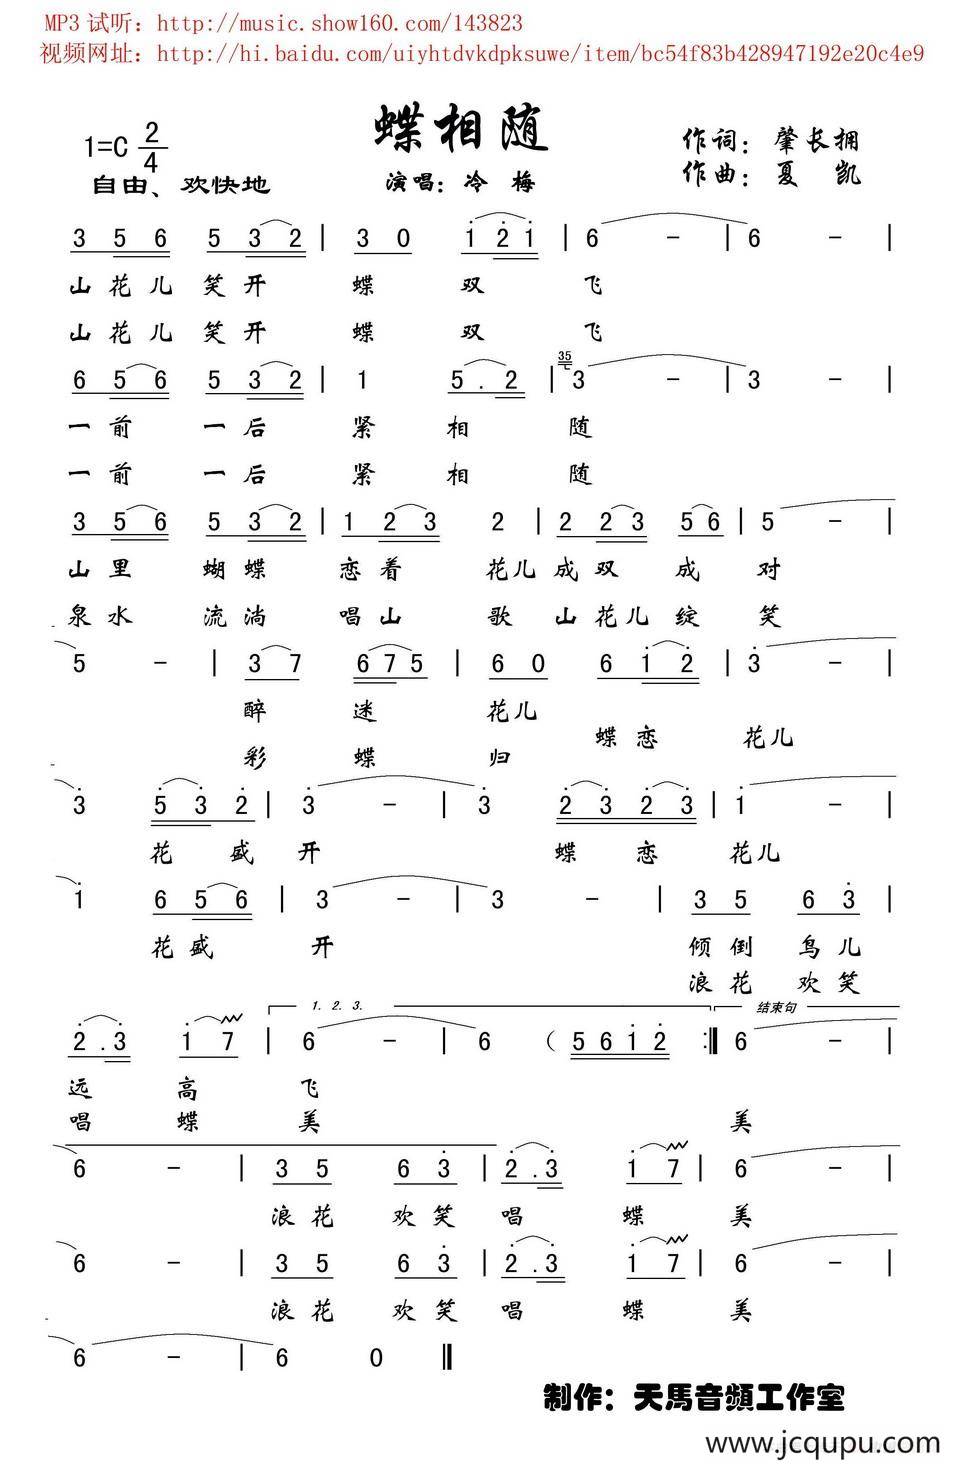 MP3 试听：http://music.show160.com/143823
视频网址：http://hi.baidu.com/uiyhtdvkdpksuwe/item/bc54f83b428947192e20c4e9
蝶相随
1=C 2/4
作词：肇长拥
自由、欢快地
演唱：冷 梅
作曲：夏 凯
3 5 6 5 3 2 | 3 0 1 2 1 | 6 - | 6 - |
山 花 儿 笑 开 蝶 双 飞
山 花 儿 笑 开 蝶 双 飞
6 5 6 5 3 2 | 1 5 . 2 | 35 3 - | 3 - |
一 前 一 后 紧 相 随
一 前 一 后 紧 相 随
3 5 6 5 3 2 | 1 2 3 2 | 2 2 3 5 6 | 5 - |
山 里 蝴 蝶 恋 着 花儿 成 双 成 对
泉 水 流 淌 唱 山 歌 山 花儿 绽 笑
5 - | 3 7 6 7 5 | 6 0 6 1 2 | 3 - |
醉 迷 花儿 蝶 恋 花儿
彩 蝶 归
3 5 3 2 | 3 - | 3 2 3 2 3 | 1 - |
花 盛 开 蝶 恋 花儿
1 6 5 6 | 3 - | 3 - | 3 5 6 3 |
花 盛 开 倾 倒 鸟 儿
浪 花 欢 笑
1. 2. 3. 结束句
2 . 3 1 7 | 6 - | 6 （ 5 6 1 2 :‖ 6 - |
远 高 飞
唱 蝶 美 美
6 - | 3 5 6 3 | 2 . 3 1 7 | 6 - |
浪 花 欢 笑 唱 蝶 美
6 - | 3 5 6 3 | 2 . 3 1 7 | 6 - |
浪 花 欢 笑 唱 蝶 美
6 - | 6 0 ‖
制作：天馬音頻工作室
www.jcqupu.com